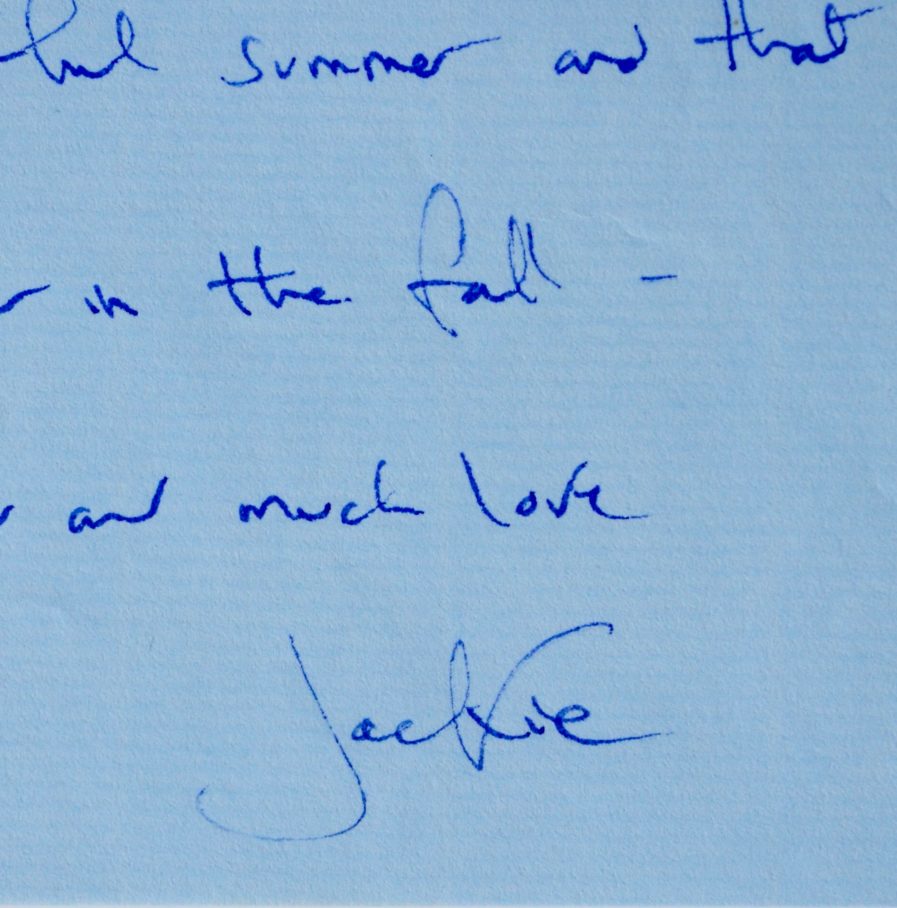 summer and that
in the fall -
and much love
Jackie